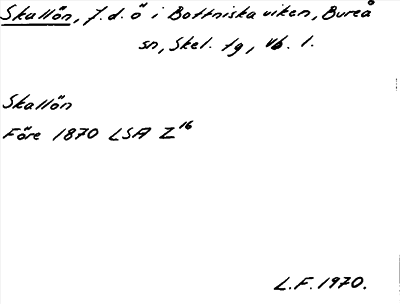 Skallön, f.d. ö i Bottniska viken, Bureå
sn, Skel. tg, Vb. l.
Skallön
Före 1870 LSA Z16
L.F. 1970.